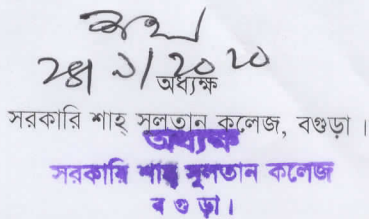 অধ্যক্ষ
সরকারি শাহ্ সুলতান কলেজ, বগুড়া ।
অধ্যক্ষ
সরকারি শাহ সুলতান কলেজ
ব গু ড়া ।